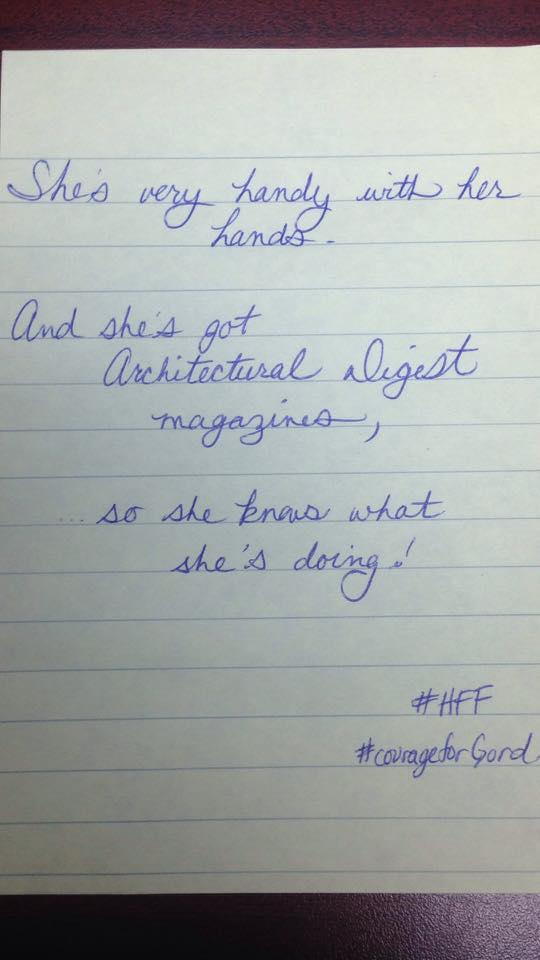 She's very handy with her
hands.
And she's got
Architectural Digest
magazines,
... so she knows what
she's doing!
#HFF
#courageforGord